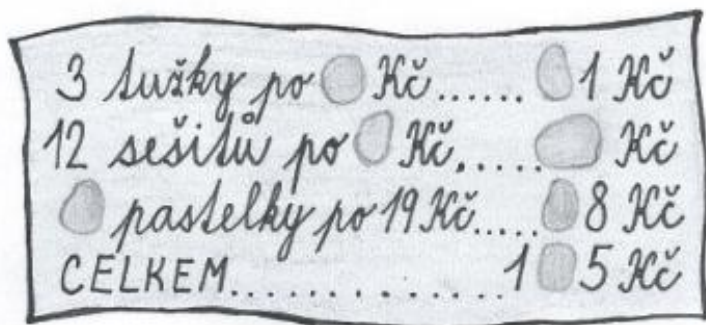 3 tužky po Kč...... 1 Kč
12 sešitů po Kč...... Kč
pastelky po 19 Kč..... 8 Kč
CELKEM.............. 1 5 Kč